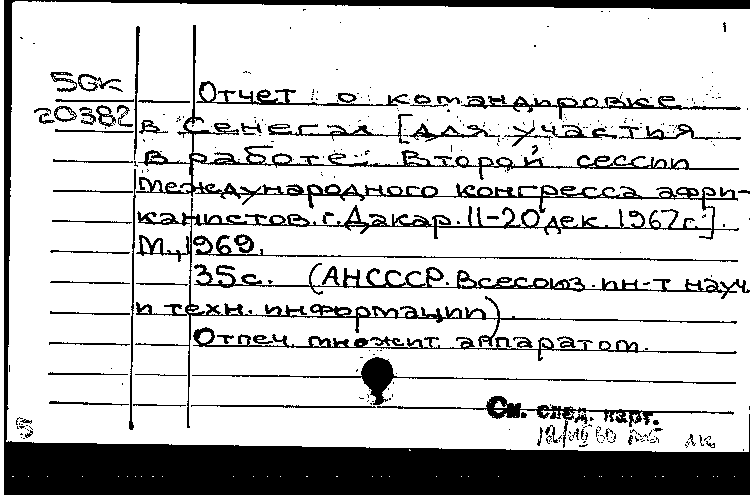 1
5GK
20382
Отчет о командировке
в Сенегал [для участия
в работе Второй сессии
Международного конгресса афри-
канистов. г. Дакар. 11-20 дек. 1967г.].
М., 1969.
35с. (АН СССР. Всесоюз. ин-т науч.
и техн. информации).
Отпеч. множит. аппаратом.
См. след. карт.
5